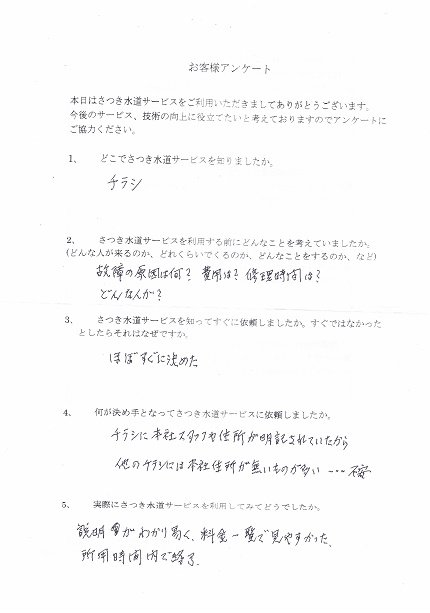 お客様アンケート
本日はさつき水道サービスをご利用いただきましてありがとうございます。
今後のサービス、技術の向上に役立てたいと考えておりますのでアンケートに
ご協力ください。
1、 どこでさつき水道サービスを知りましたか。
チラシ
2、 さつき水道サービスを利用する前にどんなことを考えていましたか。
(どんな人が来るのか、どれくらいでくるのか、どんなことをするのか、など)
故障の原因は何? 費用は? 修理時間は?
どんな人が?
3、 さつき水道サービスを知ってすぐに依頼しましたか。すぐではなかった
としたらそれはなぜですか。
ほぼすぐに決めた
4、 何が決め手となってさつき水道サービスに依頼しましたか。
チラシに本社スタッフや住所が明記されていたから
他のチラシには本社住所が無いものが多い …… 不安
5、 実際にさつき水道サービスを利用してみてどうでしたか。
説明がわかり易く、料金一覧で見やすかった。
所用時間内で終了。